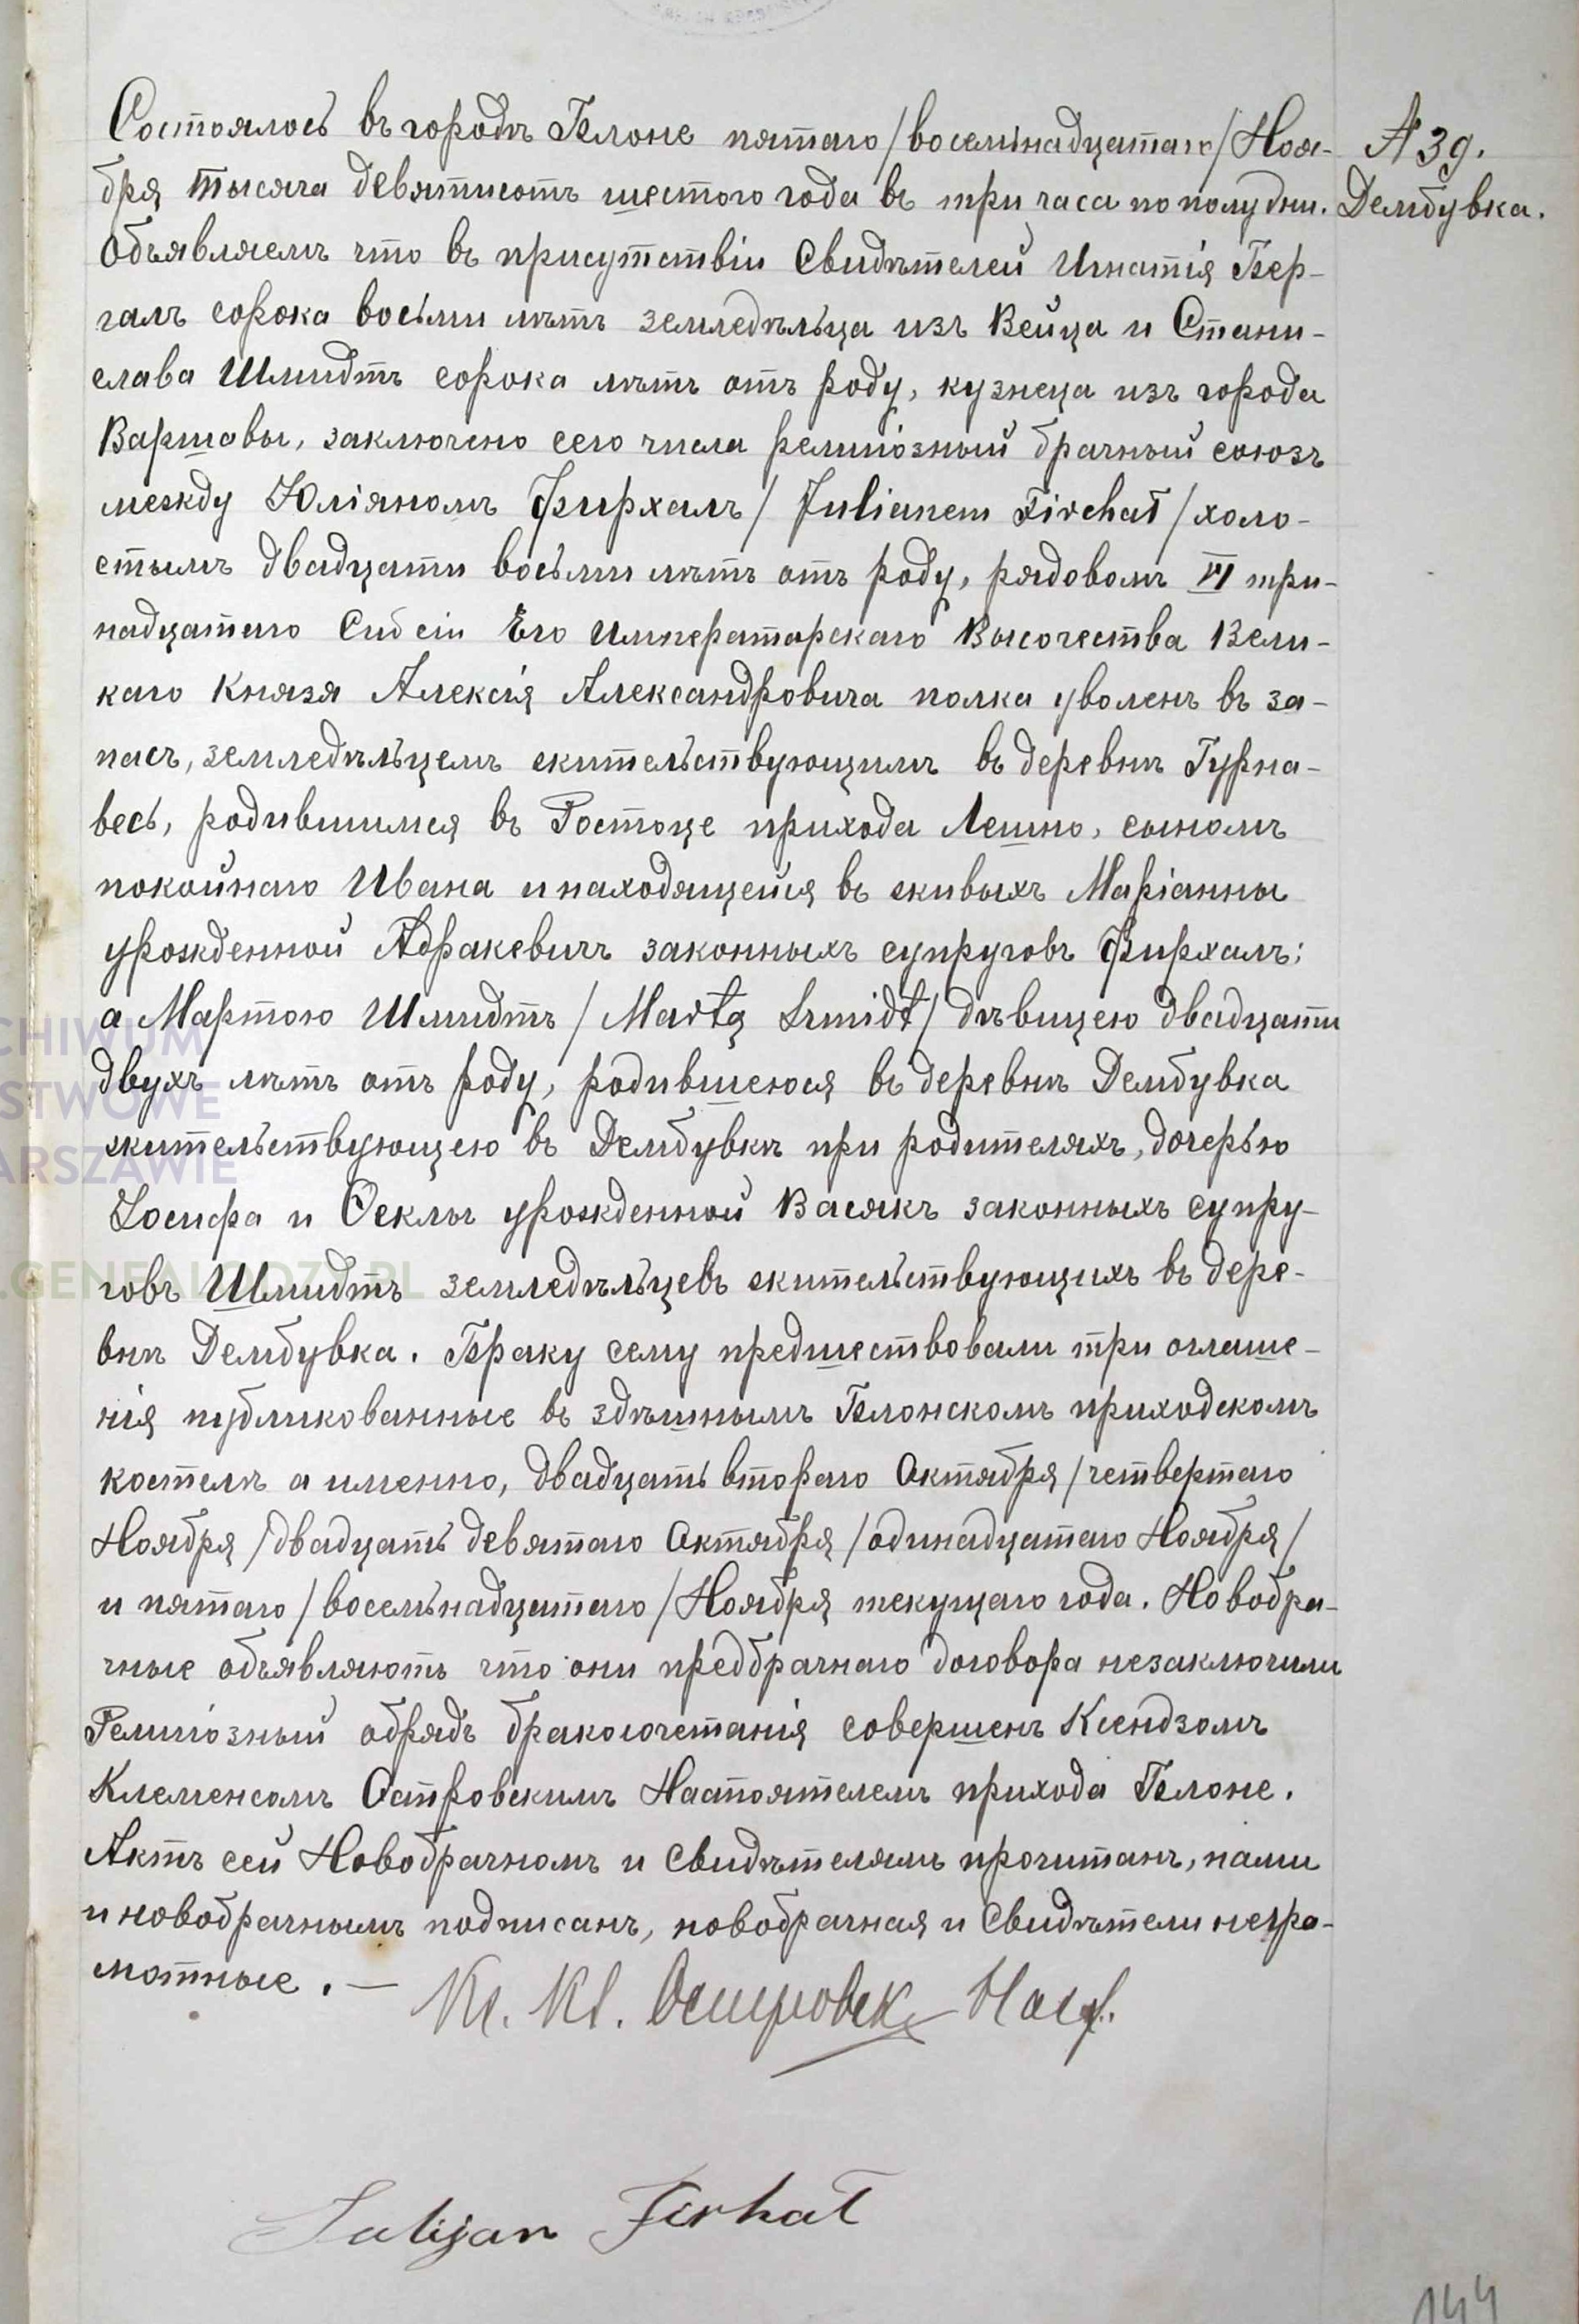 Состоялось въ городѣ Блоне пятаго /восемнадцатаго/ Ноя-
№ 39.
бря тысяча девятисотъ шестого года въ три часа по полудни.
Дембувка.
Объявляемъ что въ присутствіи Свидѣтелей Игнатія Бер-
галъ сорока восьми лѣтъ земледѣльца изъ Вейца и Стани-
слава Шмидтъ сорока лѣтъ отъ роду, кузнеца изъ города
Варшавы, заключено сего числа религіозный брачный союзъ
между Юліяномъ Фирхалъ / Julianem Firchał / холо-
стымъ двадцати восьми лѣтъ отъ роду, рядовомъ VI три-
надцатаго Сибсіи Его Императарскаго Высочества Вели-
каго Князя Алексія Александровича полка уволенъ въ за-
пасъ, земледѣльцемъ жительствующимъ въ деревнѣ Гурна-
весь, родившимся въ Ростоце прихода Лешно, сыномъ
покойнаго Ивана и находящейся въ живыхъ Маріанны
урожденной Адракевичъ законныхъ супруговъ Фирхалъ;
а Мартою Шмидтъ / Martą Szmidt / дѣвицею двадцати
двухъ лѣтъ отъ роду, родившеюся въ деревнѣ Дембувка
жительствующею въ Дембувкѣ при родителяхъ, дочерью
Іосифа и Ѳеклы урожденной Васякъ законныхъ супру-
говъ Шмидтъ земледѣльцевъ жительствующихъ въ дере-
внѣ Дембувка. Браку сему предшествовали три оглаше-
нія публикованные въ здѣшнымъ Блонскомъ приходскомъ
костелѣ а именно, двадцать втораго Октября /четвертаго
Ноября /двадцать девятаго Октября /одинадцатаго Ноября/
и пятаго /восемьнадцатаго /Ноября текущаго года. Новобра-
чные объявляютъ что они предбрачнаго договора незаключили
Религіозный обрядъ бракосочетанія совершенъ Ксендзомъ
Клеменсомъ Островскимъ Настоятелемъ прихода Блоне.
Актъ сей Новобрачномъ и Свидѣтелямъ прочитанъ, нами
и новобрачнымъ подписанъ, новобрачная и Свидѣтели негра-
мотные. —
Кс. Кл. Островск Наст.
Julijan Firhał
144
ARCHIWUM
PAŃSTWOWE
WARSZAWIE
.GENEALODZY.PL